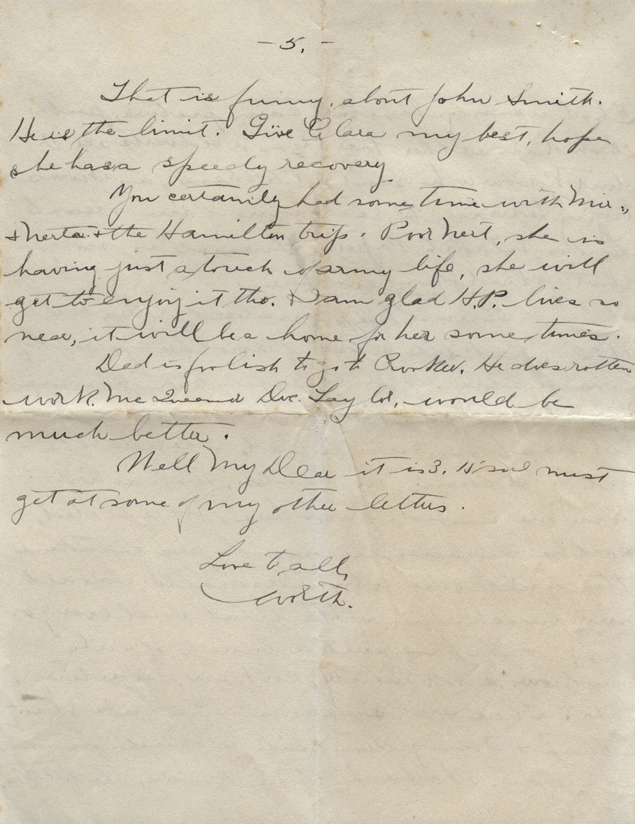 - 5. -
That is funny, about John Smith.
He is the limit. Give Clara my best, hope
she has a speedy recovery
You certainly had some time with
& the Hamilton trip. Poor Neit, she is
having just a touch of army life, she will
get to enjoy it tho. I am glad H.P. lives so
near, it will be a home for her some times.
Dad is foolish to go to Crooker. He does rotten
work. McQueen or Doc. Taylor, would be
much better.
Well My Dear it is 3.15 and must
get at some of my other letters.
Love to all,
Worth.